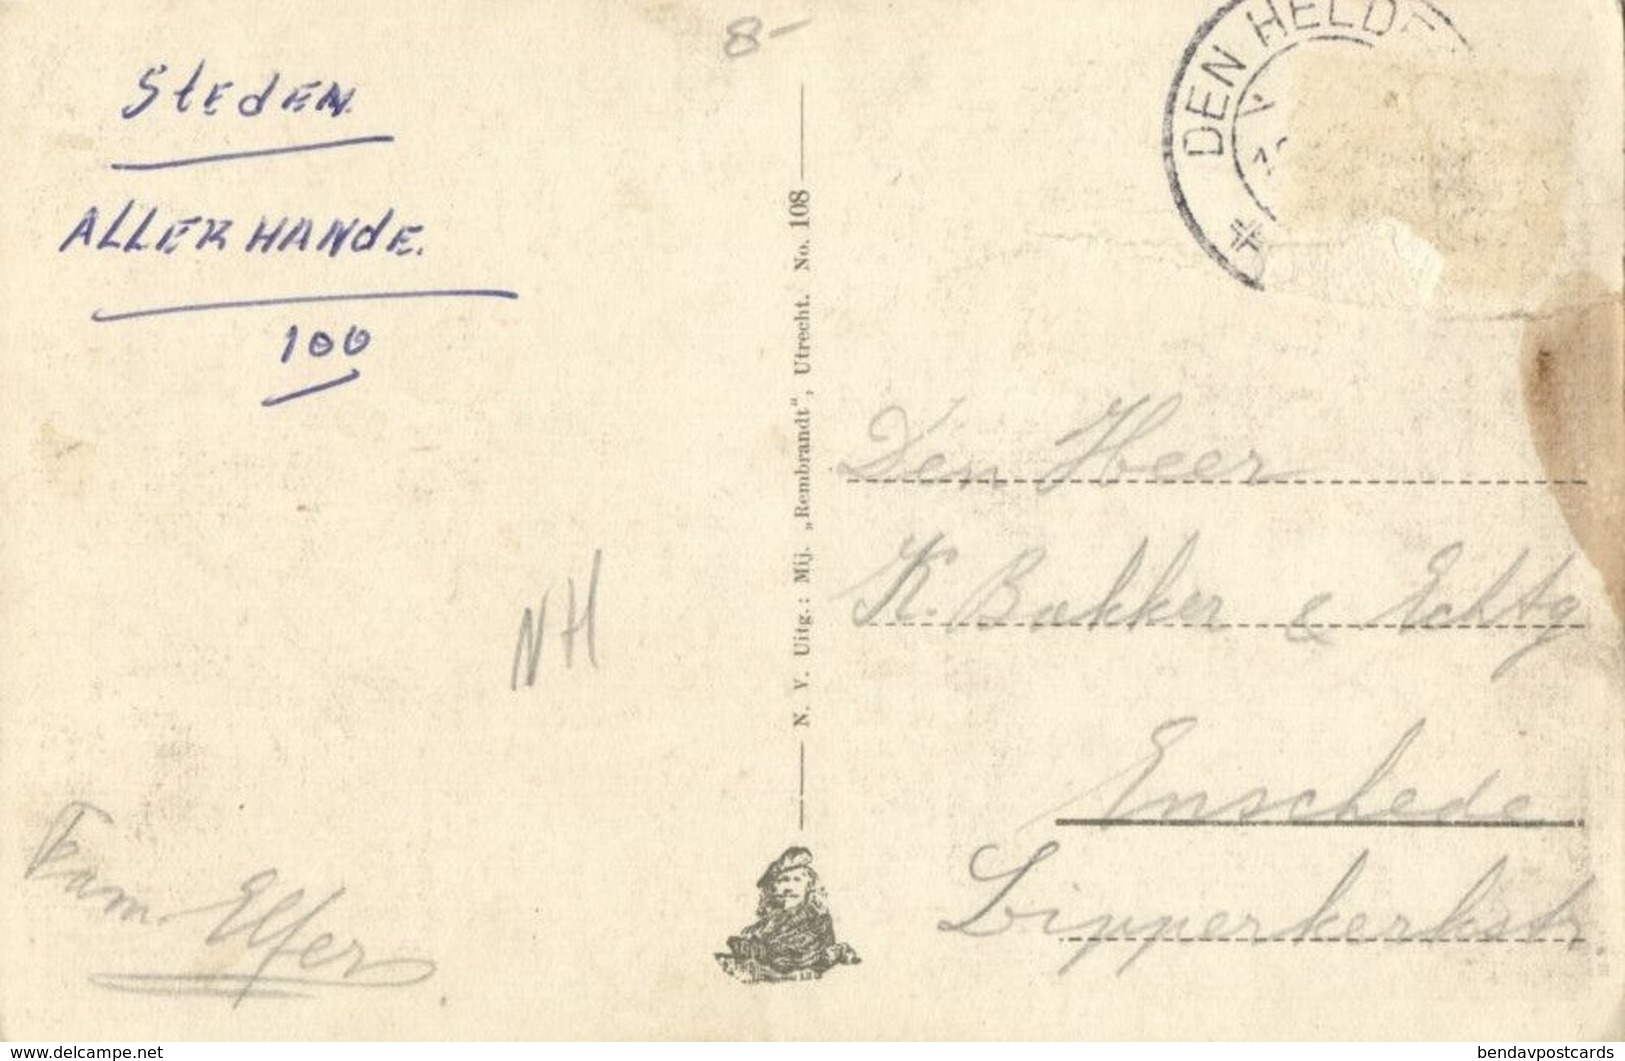 8-
Steden.
ALLERHANDE.
100
NH
Fam. Elfer
N. V. Uitg.: Mij. „Rembrandt“, Utrecht. No. 108
DEN HELDE
Den Heer
K. Bakker & Echtg
Enschede
Lipperkerkstr.
www.delcampe.net
bendavpostcards